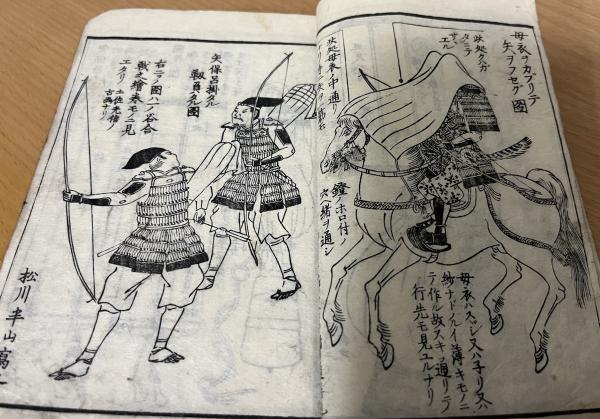 母衣ヲカブリテ
矢ヲフセグ
図
此処母衣ノ中通リ
ノホロ付ノ
穴ヘ緒ヲ通シ
母衣ハスヾシ又ハ子リ又ハ
紗ナドノルイ薄キモノニ
テ作ル故スキ通リテ
行先モ見ユルナリ
矢保呂掛タル
靱負タル図
右二ノ図ハ一ノ谷合
戦之繪巻モノニ見
エタリ 土佐光信ノ
古画ナリ
松川半山寫